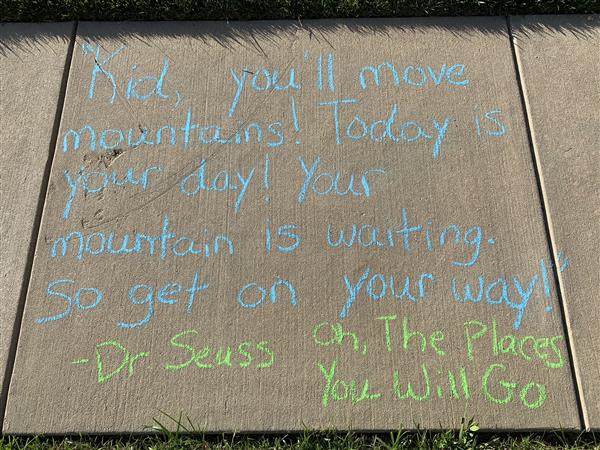 "Kid, you'll move
mountains! Today is
your day! Your
mountain is waiting.
So get on your way!"
-Dr Seuss Oh, The Places
You Will Go